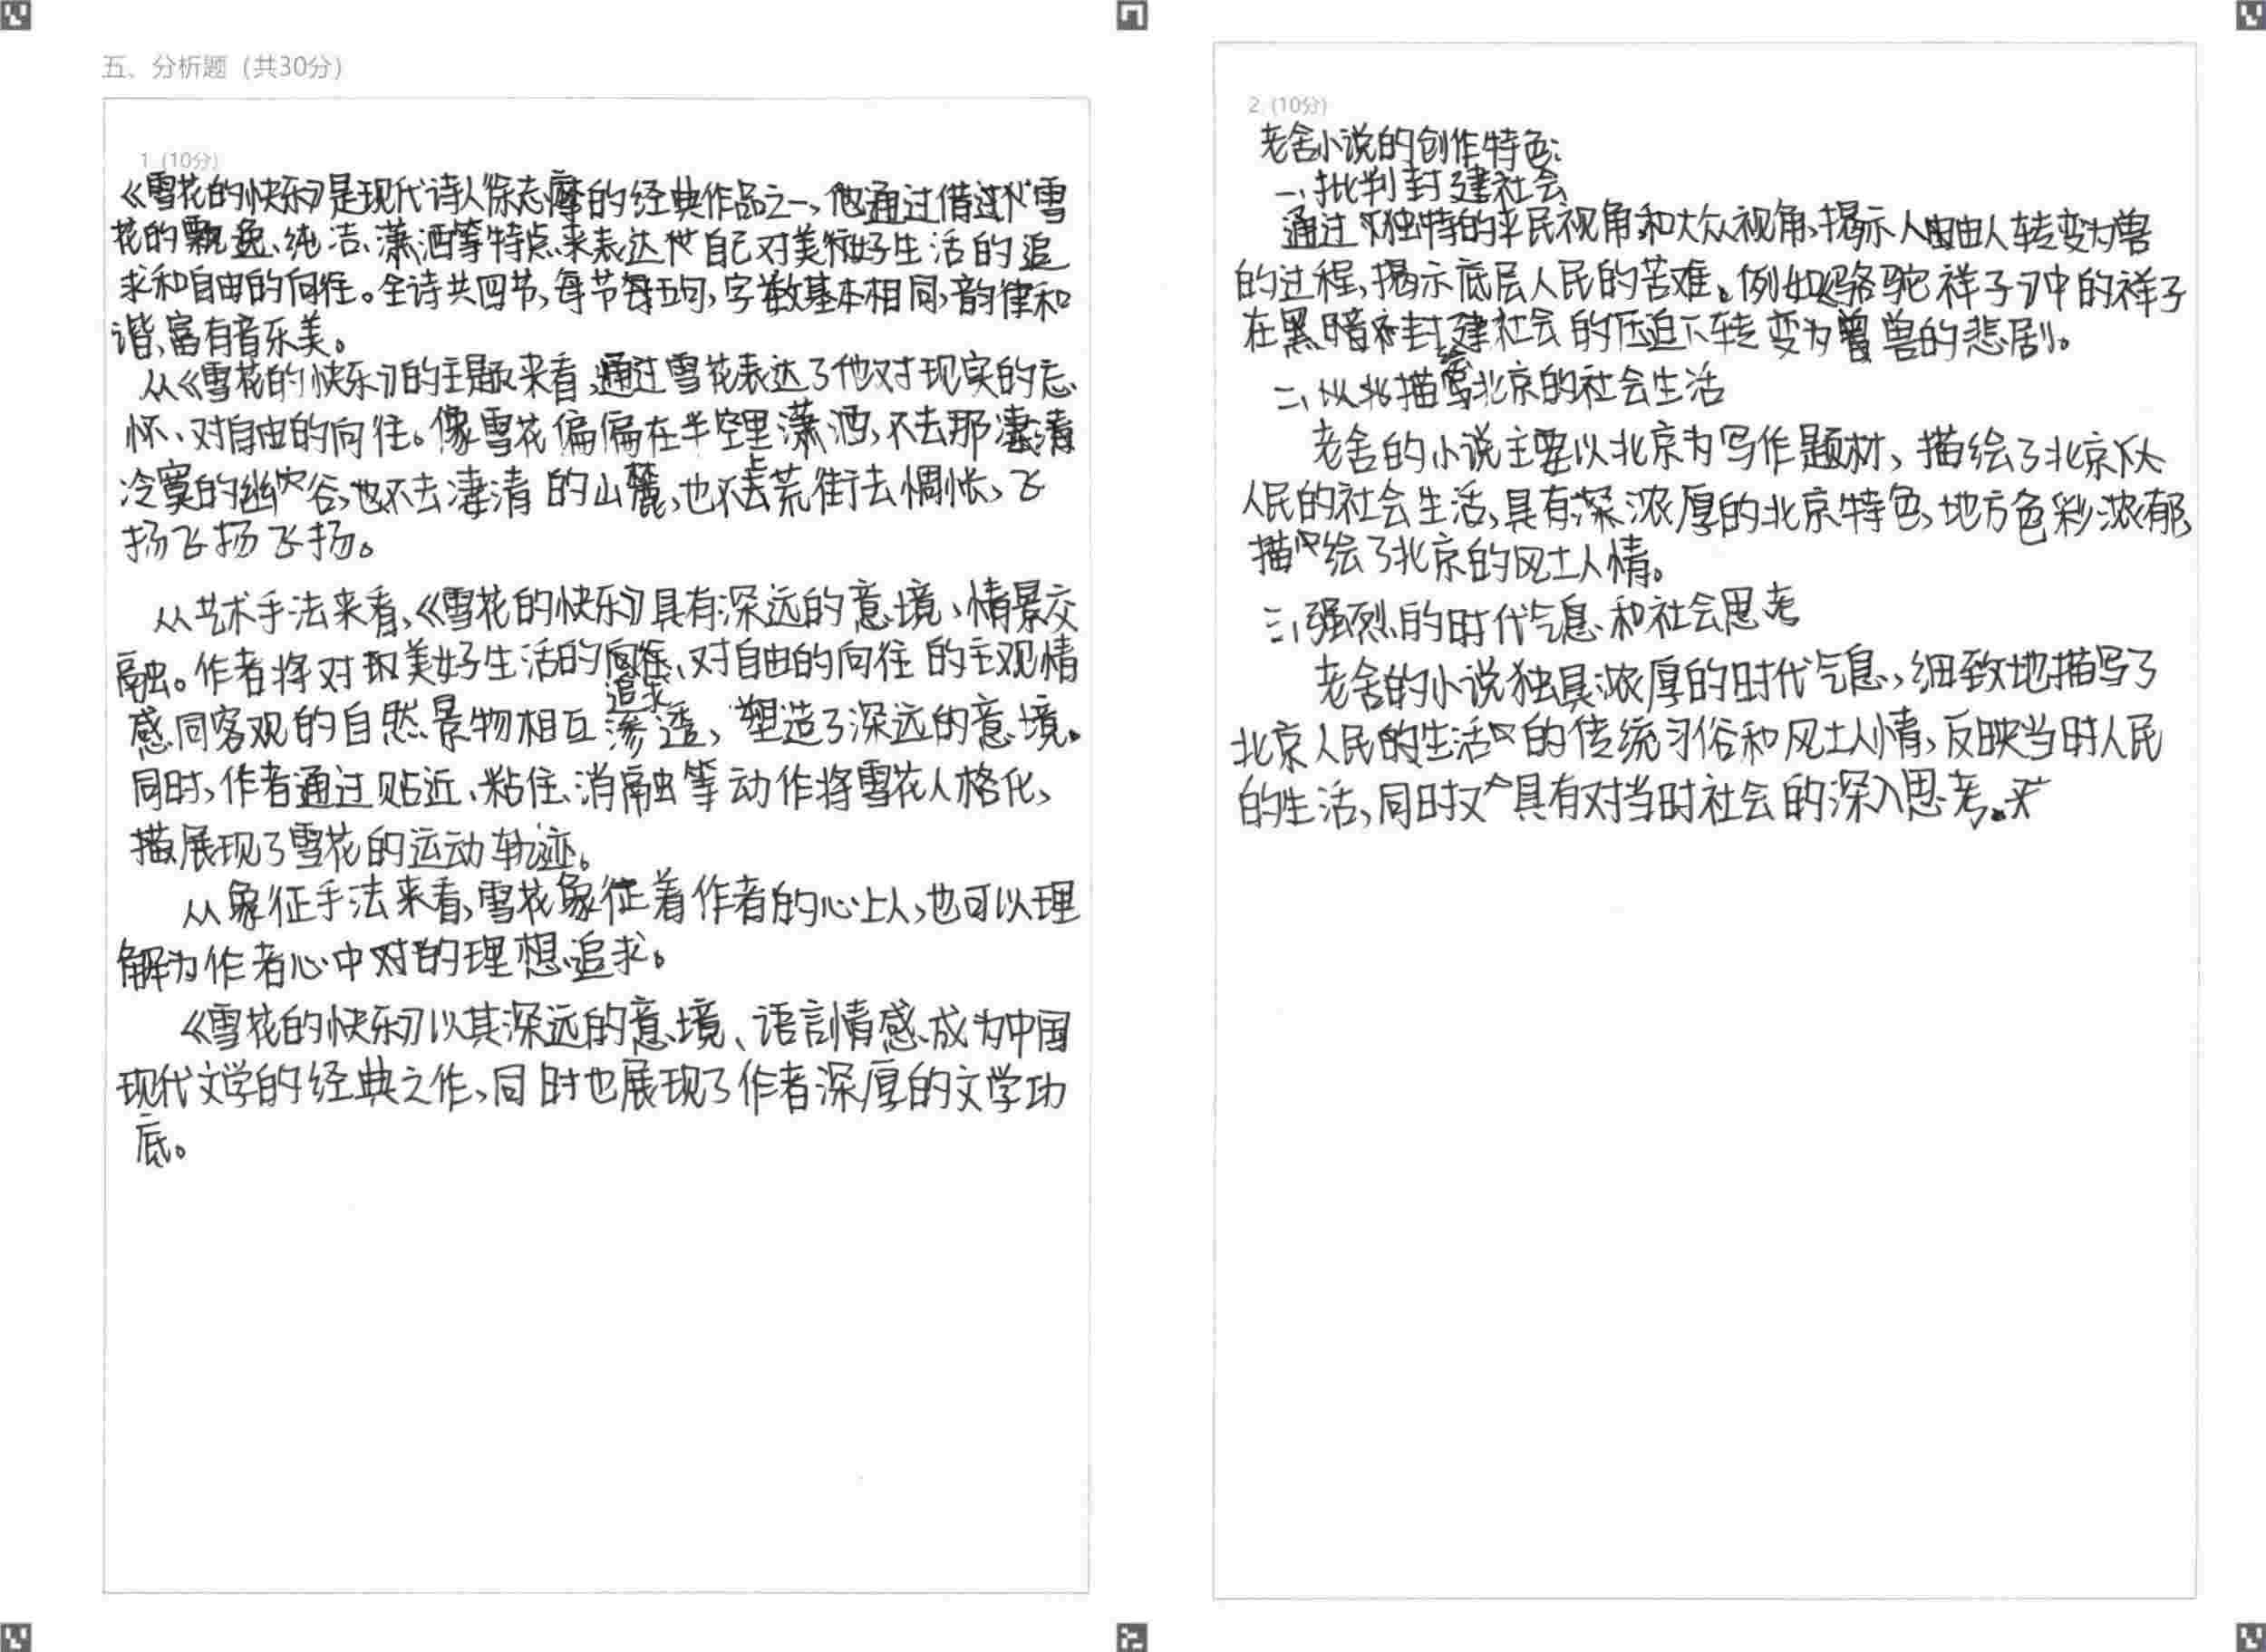 五、分析题（共30分）
1. (10分)
《雪花的快乐》是现代诗人徐志摩的经典作品之一，他通过借雪
花的飘逸、纯洁、潇洒等特点来表达自己对美好生活的追
求和自由的向往。全诗共四节，每节五句，字数基本相同，韵律和
谐，富有音乐美。
从《雪花的快乐》的主题来看，通过雪花表达了他对现实的忘
怀、对自由的向往。像雪花偏偏在半空里潇洒，不去那
冷寞的幽谷，也不去凄清的山麓，也不上荒街去惆怅，飞
扬飞扬飞扬。
从艺术手法来看，《雪花的快乐》具有深远的意境，情景交
融。作者将对美好生活的追求、对自由的向往的主观情
感同客观的自然景物相互渗透，塑造了深远的意境。
同时，作者通过贴近、粘住、消融等动作将雪花人格化，
展现了雪花的运动轨迹。
从象征手法来看，雪花象征着作者的心上人，也可以理
解为作者心中的理想追求。
《雪花的快乐》以其深远的意境、语言情感成为中国
现代文学的经典之作，同时也展现了作者深厚的文学功
底。
2. (10分)
老舍小说的创作特色：
一、批判封建社会
通过独特的平民视角和大众视角，揭示人由人转变为兽
的过程，揭示底层人民的苦难。例如《骆驼祥子》中的祥子
在黑暗封建社会的压迫下转变为兽的悲剧。
二、描绘北京的社会生活
老舍的小说主要以北京为写作题材，描绘了北京
人民的社会生活，具有浓厚的北京特色，地方色彩浓郁，
描绘了北京的风土人情。
三、强烈的时代气息和社会思考
老舍的小说独具浓厚的时代气息，细致地描写了
北京人民的生活的传统习俗和风土人情，反映当时人民
的生活，同时又具有对当时社会的深入思考。